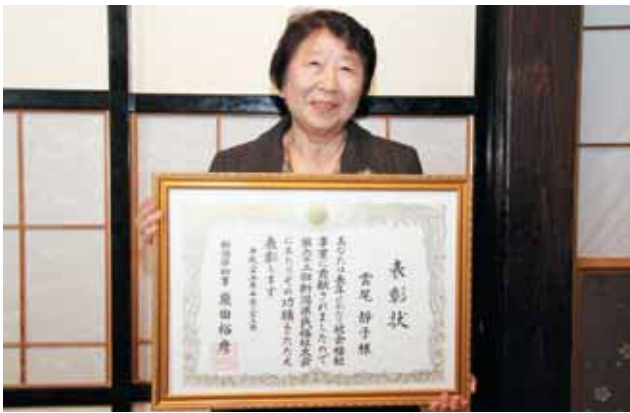 表彰状
雲尾 靜子 様
あなたは長年にわたり社会福祉
事業に貢献されましたので
第六十三回新潟県民福祉大会
にあたりその功績をたたえ
表彰します
新潟県知事 泉田裕彦